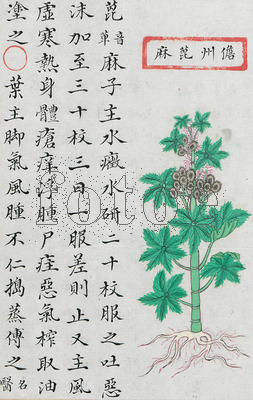 儋州蓖麻
蓖音萆麻子主水癥水研二十枚服之吐惡
沫加至三十枚三日一服差則止又主風
虛寒熱身體瘡癢浮腫尸疰惡氣榨取油
塗之○葉主脚氣風腫不仁搗蒸傅之名醫
fotoe